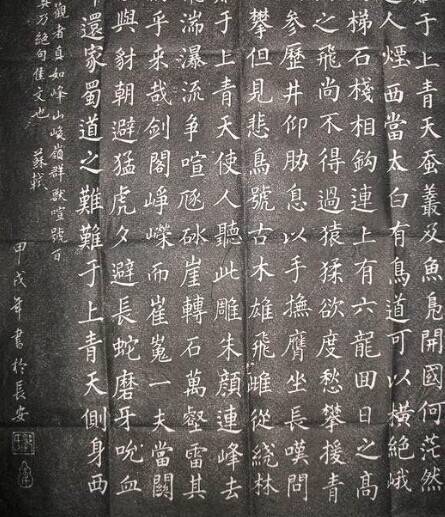 于上青天蚕叢及魚鳧開國何茫然
人煙西當太白有鳥道可以橫絕峨
梯石棧相鈎連上有六龍回日之高
之飛尚不得過猿猱欲度愁攀援青
參歷井仰胁息以手撫膺坐長嘆問
攀但見悲鳥號古木雄飛雌從繞林
于上青天使人聽此雕朱顏連峰去
湍瀑流爭喧豗砯崖轉石萬壑雷其
乎來哉劍閣崢嶸而崔嵬一夫當關
與豺朝避猛虎夕避長蛇磨牙吮血
還家蜀道之難難于上青天側身西
觀者真如峰山峻嶺群獸喧號百
乃絕句佳文也 蘇軾
甲戌年書於長安